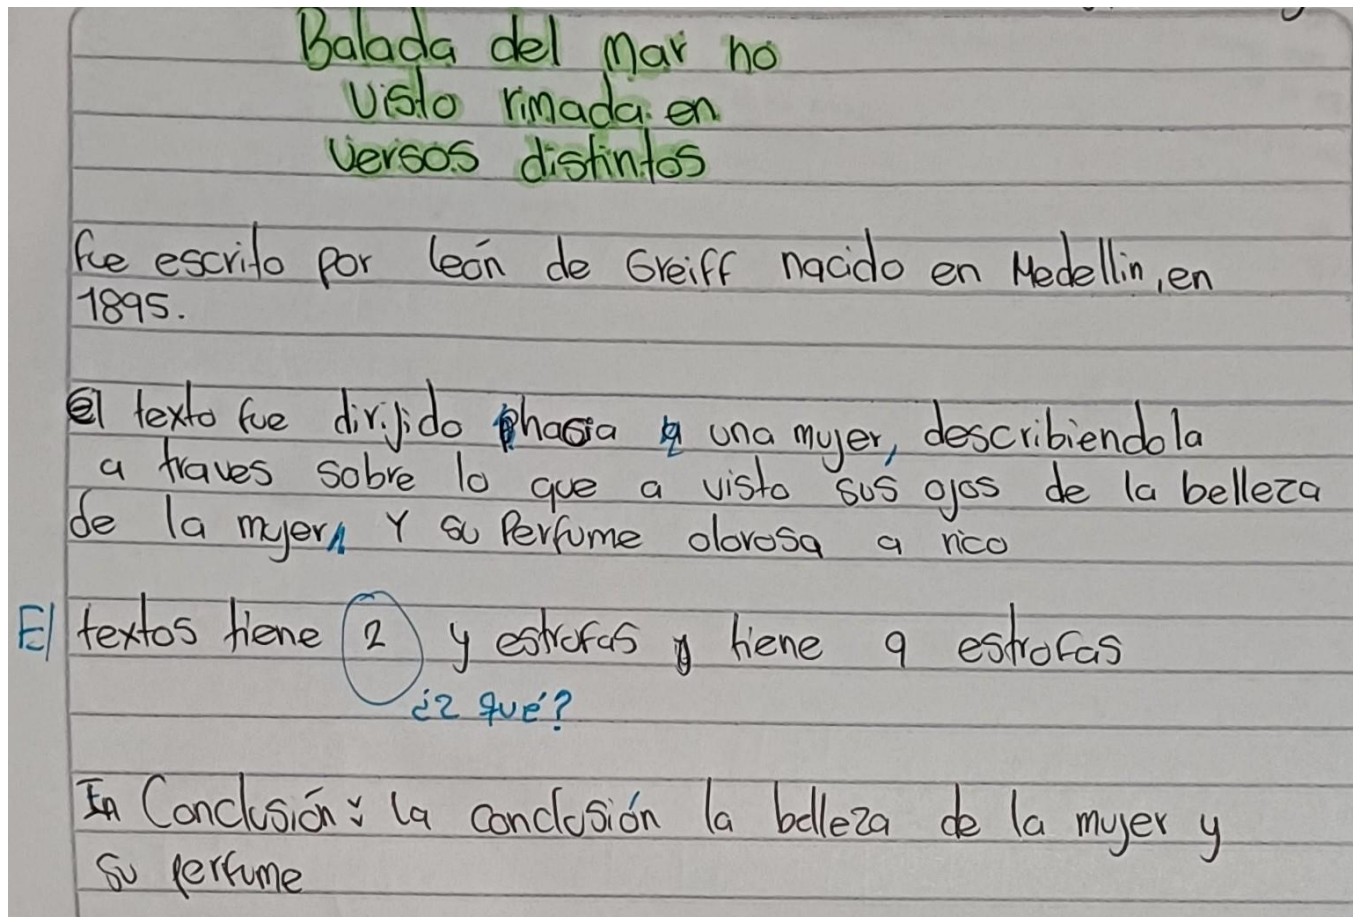 Balada del mar no
visto rimada en
versos distintos
fue escrito por león de Greiff nacido en Medellin, en
1895.
El texto fue dirijido hacia una mujer, describiendola
a traves sobre lo que a visto sus ojos de la belleza
de la mujer, Y su Perfume olorosa a rico
El textos tiene 2 y estrofas y tiene 9 estrofas
¿2 qué?
En Conclusión: la conclusión la belleza de la mujer y
su perfume